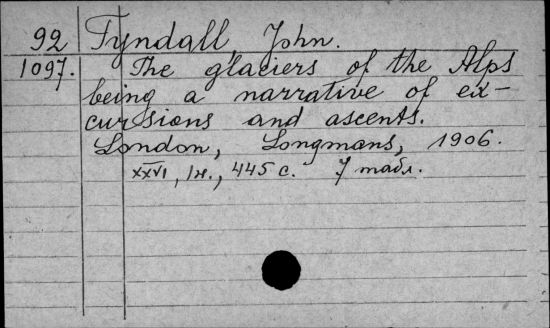 92 Tyndall, John.
1097. The glaciers of the Alps
being a narrative of ex-
cursions and ascents.
London, Longmans, 1906.
XXVI, 1н., 445 с. 7 табл.